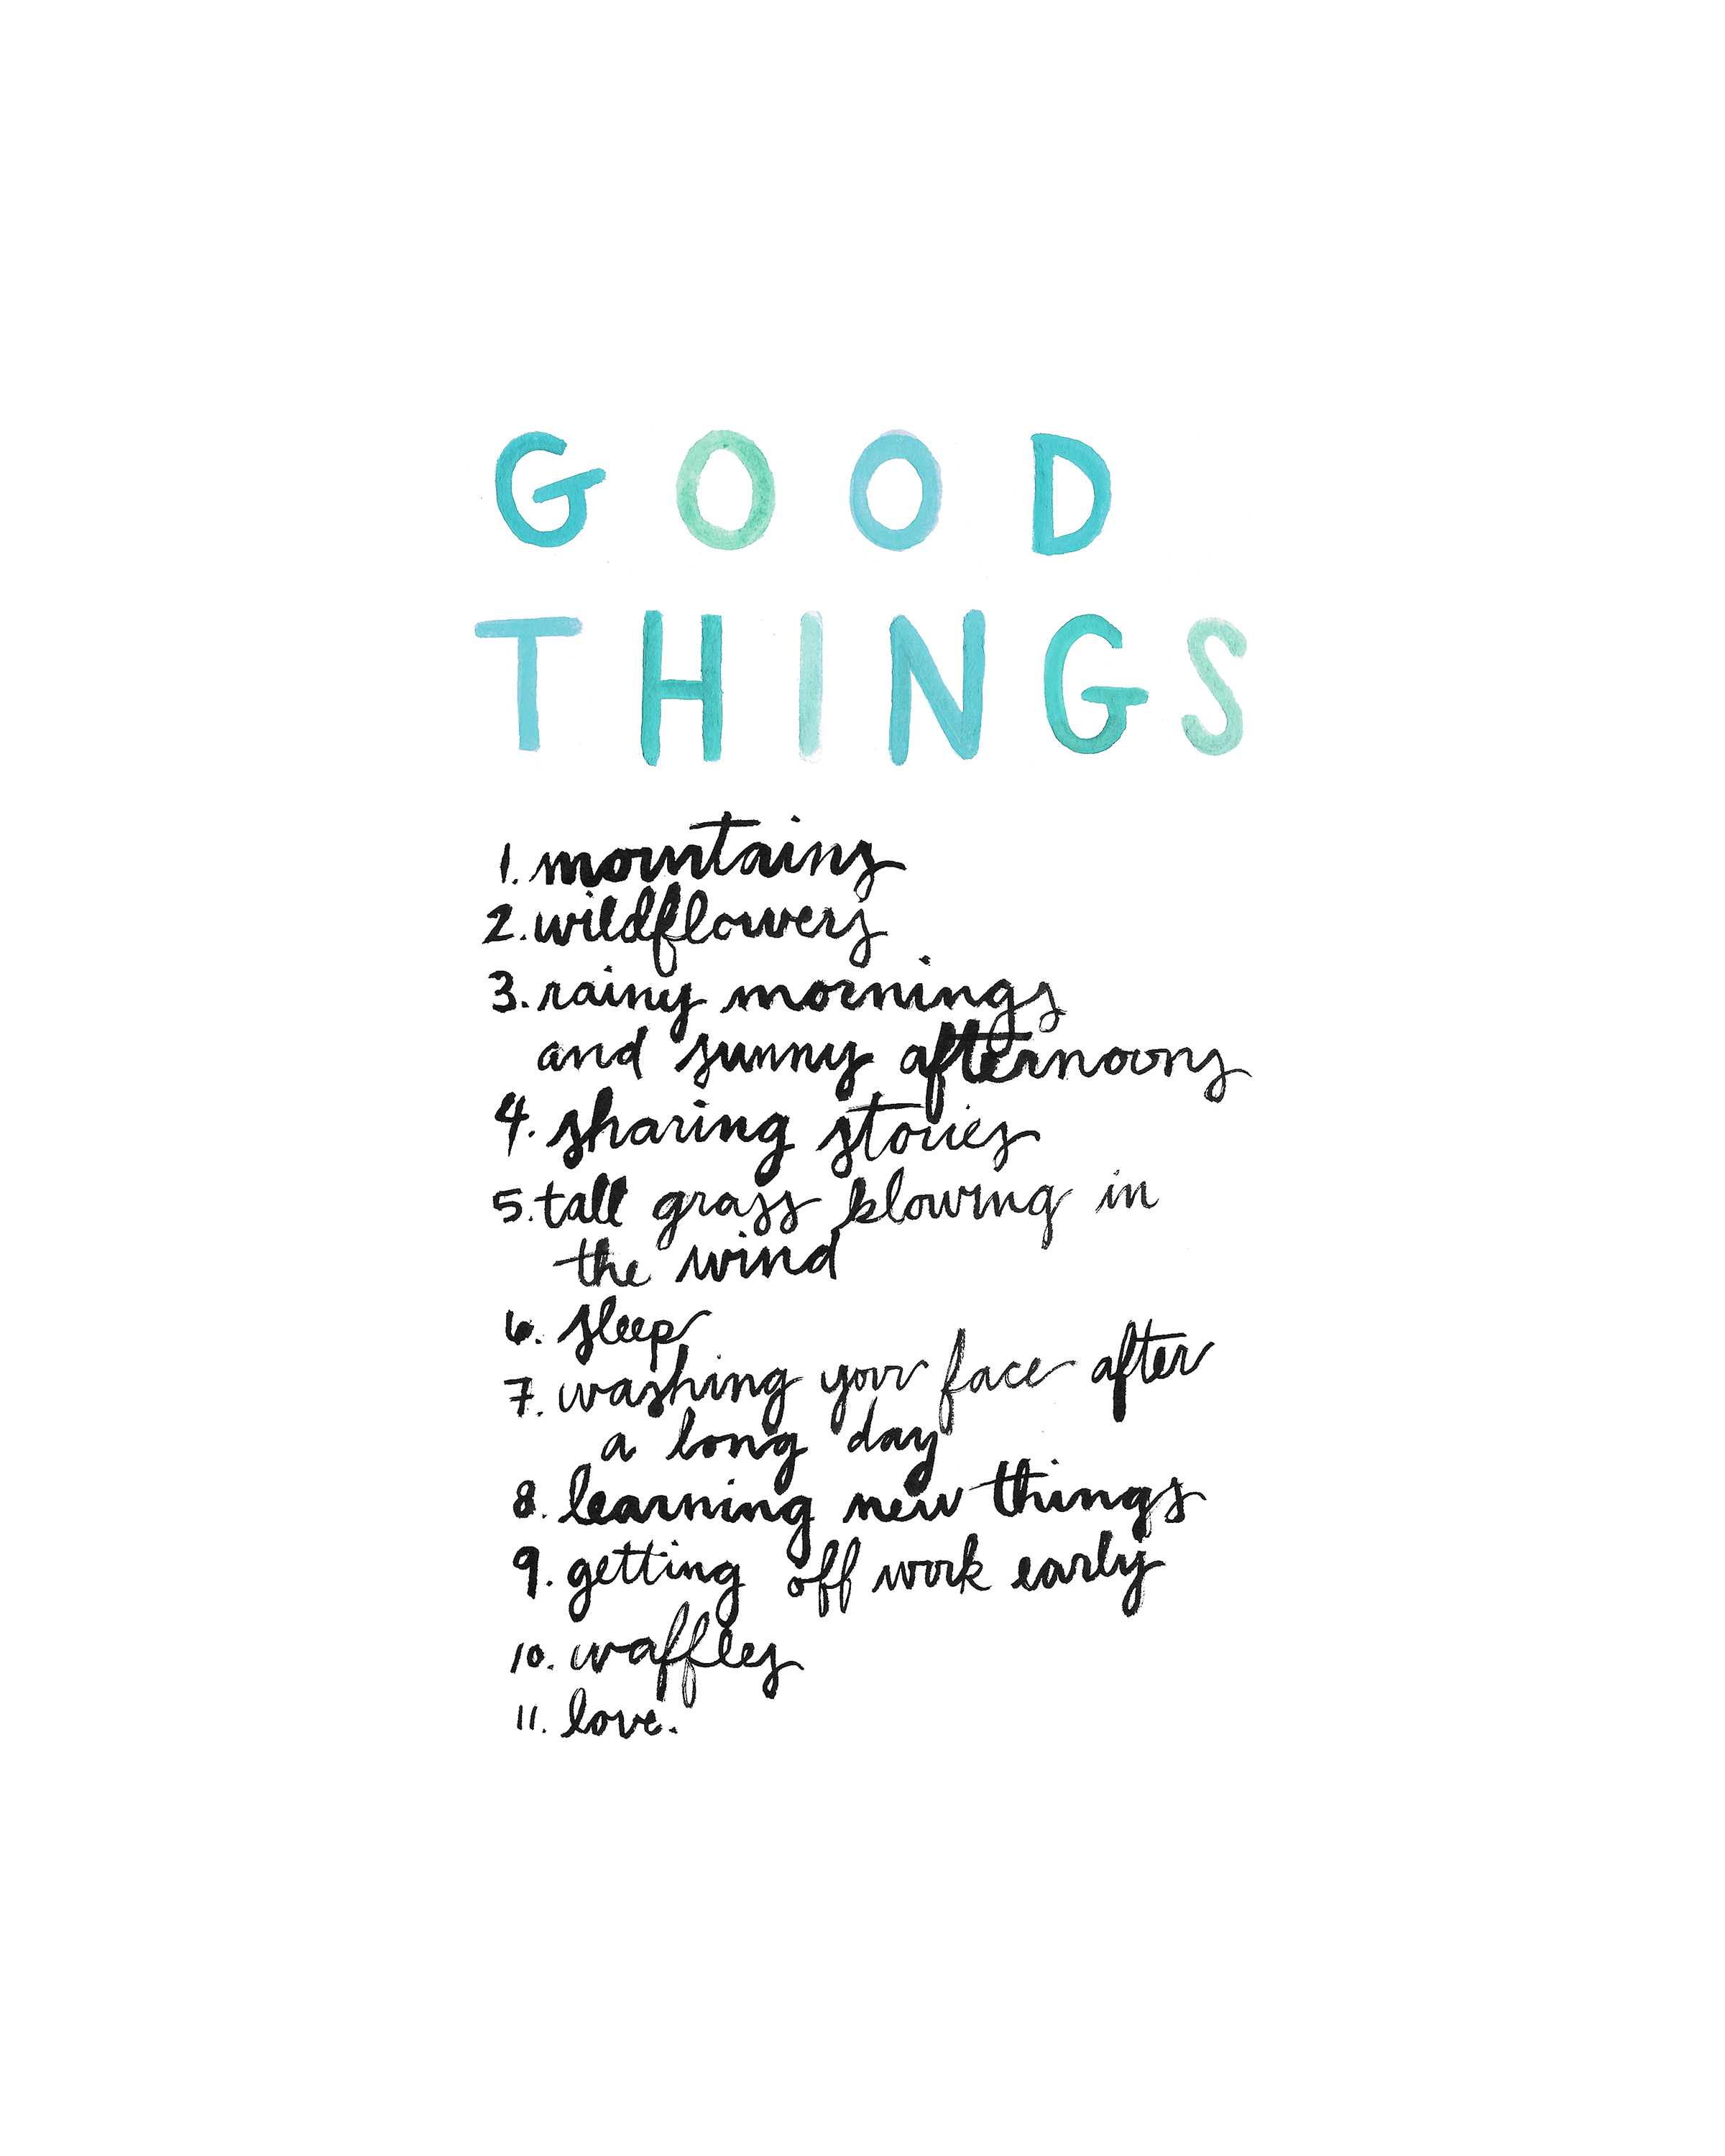 GOOD
THINGS
1. mountains
2. wildflowers
3. rainy mornings
and sunny afternoons
4. sharing stories
5. tall grass blowing in
the wind
6. sleep
7. washing your face after
a long day
8. learning new things
9. getting off work early
10. waffles
11. love.